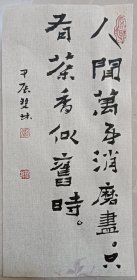 人間萬事消磨盡只
有茶香似舊時。
甲辰